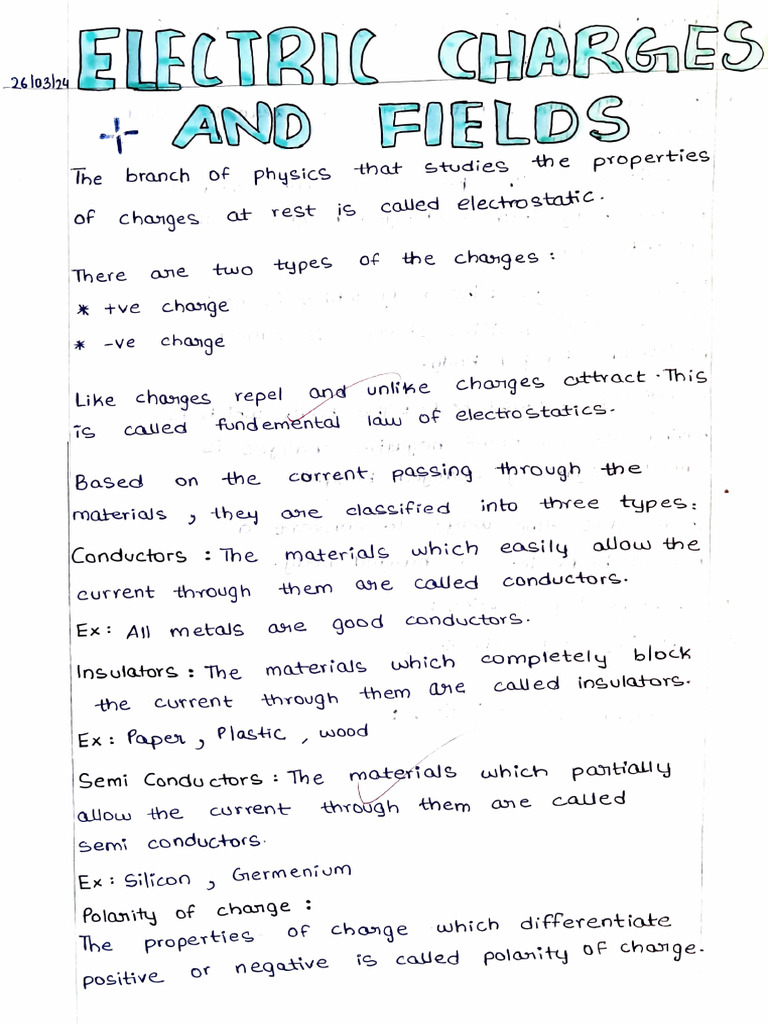 ELECTRIC CHARGES
26/03/24
+ AND FIELDS
The branch of physics that studies the properties
of charges at rest is called electrostatic.
There are two types of the charges :
* +ve charge
* -ve charge
Like charges repel and unlike charges attract. This
is called fundemental law of electrostatics.
Based on the corrent passing through the
materials, they are classified into three types:
Conductors : The materials which easily allow the
current through them are called conductors.
Ex: All metals are good conductors.
Insulators : The materials which completely block
the current through them are called insulators.
Ex: Paper, Plastic, wood
Semi Conductors : The materials which partially
allow the current through them are called
semi conductors.
Ex: Silicon, Germenium
Polarity of charge :
The properties of charge which differentiate
positive or negative is called polarity of charge.